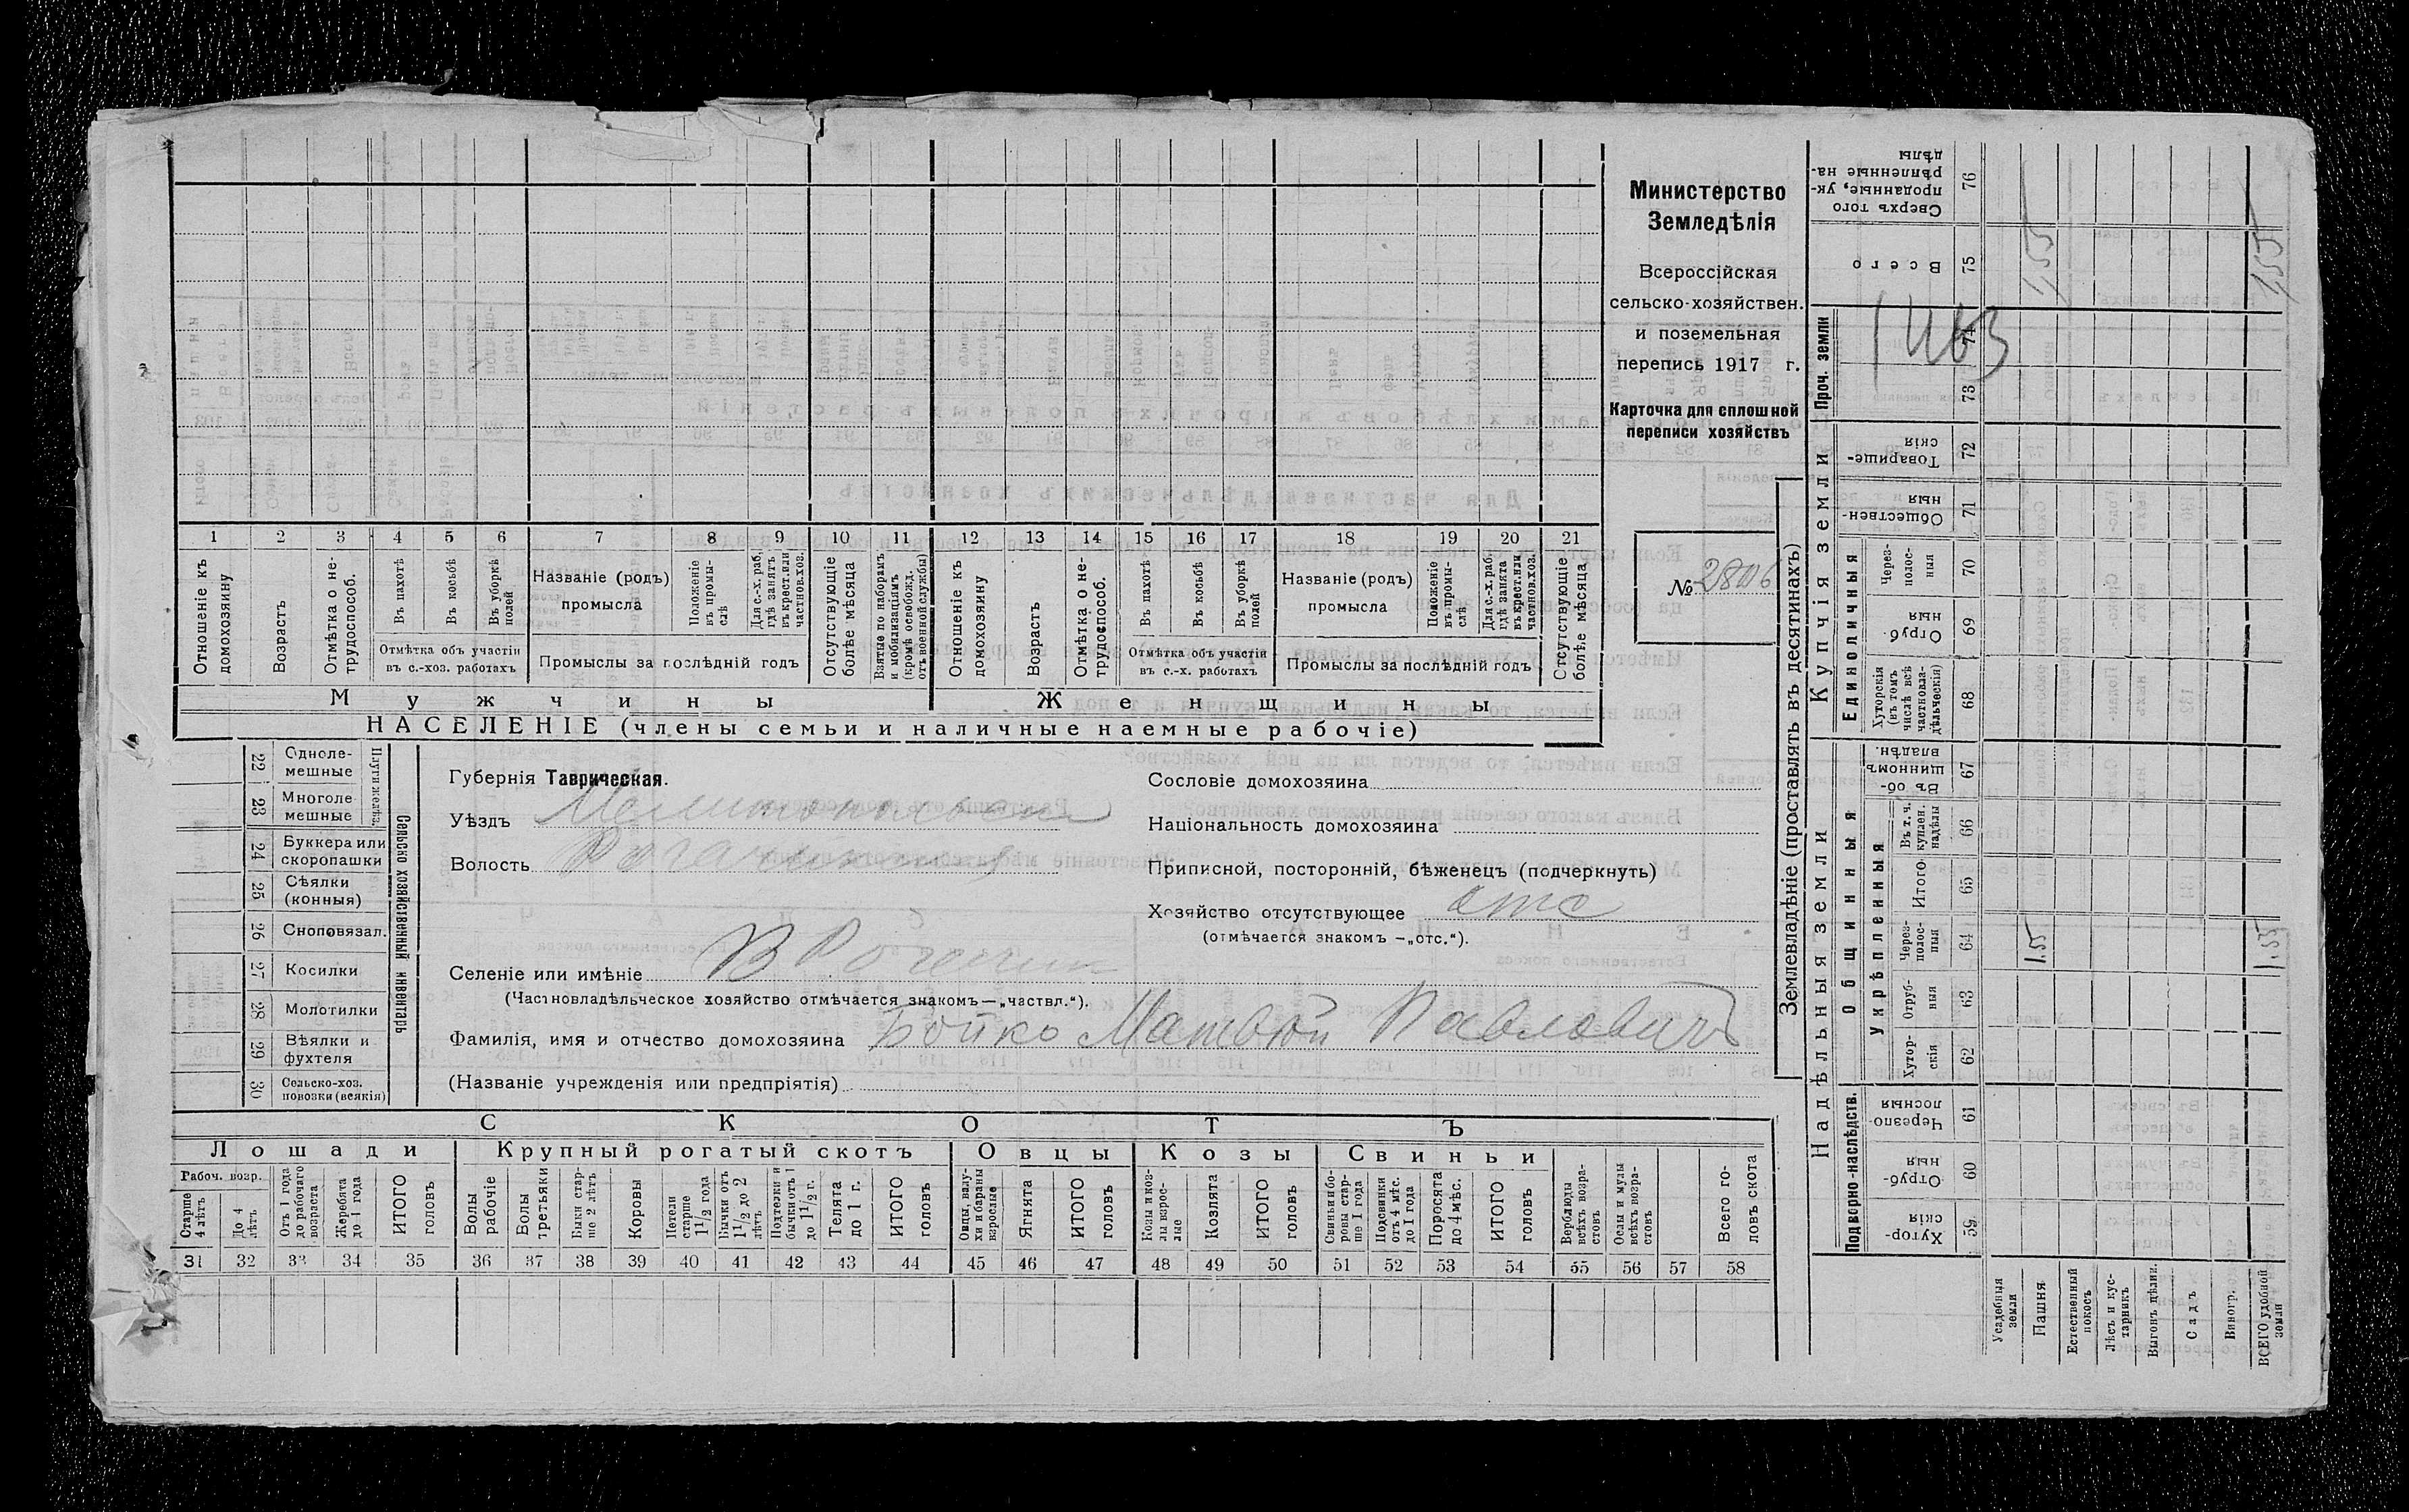 1 2 3 4 5 6 7 8 9 10 11 12 13 14 15 16 17 18 19 20 21
Отношеніе къ домохозяину
Возрастъ
Отмѣтка о не-
трудоспособ.
Въ пахотѣ
Въ косьбѣ
Въ уборкѣ
полей
Отмѣтка объ участіи
въ с.-хоз. работахъ
Названіе (родъ)
промысла
Положеніе
въ промы-
слѣ
Для с.-х. раб.,
гдѣ занятъ
въ крест. или
частнов. хоз.
Промыслы за послѣдній годъ
Отсутствующіе
болѣе мѣсяца
Взятые по наборамъ
и мобилизаціямъ
(кромѣ освобожд.
отъ военной службы)
Отношеніе къ
домохозяину
Возрастъ
Отмѣтка о не-
трудоспособ.
Въ пахотѣ
Въ косьбѣ
Въ уборкѣ
полей
Отмѣтка объ участіи
въ с.-х. работахъ
Названіе (родъ)
промысла
Положеніе
въ промы-
слѣ
Для с.-х. раб.
гдѣ занята
въ крест. или
частнов. хоз.
Промыслы за послѣдній годъ
Отсутствующіе
болѣе мѣсяца
Мужчины
Женщины
НАСЕЛЕНІЕ (члены семьи и наличные наемные рабочіе)
Министерство
Земледѣлія
Всероссійская
сельско-хозяйствен.
и поземельная
перепись 1917 г.
Карточка для сплошной
переписи хозяйствъ
№ 2806
22 Одноле-
мешные
23 Многоле
мешные
Плуги желѣз.
24 Буккера или
скоропашки
25 Сѣялки
(конныя)
26 Сноповязал.
27 Косилки
28 Молотилки
29 Вѣялки и
фухтеля
30 Сельско-хоз.
повозки (всякія)
Сельско хозяйственный инвентарь
Губернія Таврическая.
Уѣздъ Мелитопольскій
Волость Рогачинская
Селеніе или имѣніе В Рогачик
(Частновладѣльческое хозяйство отмѣчается знакомъ—„частвл.“).
Фамилія, имя и отчество домохозяина Бойко Матвѣй Павловичъ
(Названіе учрежденія или предпріятія)
Сословіе домохозяина
Національность домохозяина
Приписной, посторонній, бѣженецъ (подчеркнуть)
Хозяйство отсутствующее отс
(отмѣчается знакомъ —„отс.“).
СКОТЪ
Лошади
Крупный рогатый скотъ
Овцы
Козы
Свиньи
Рабоч. возр.
Старше
4 лѣтъ
До 4
лѣтъ
Отъ 1 года
до рабочаго
возраста
Жеребята
до 1 года
ИТОГО
головъ
Волы
рабочіе
Волы
третьяки
Быки стар-
ше 2 лѣтъ
Коровы
Нетели
старше
1 1/2 года
Бычки отъ
1 1/2 до 2
лѣтъ
Подтелки и
бычки отъ 1
до 1 1/2 г.
Телята
до 1 г.
ИТОГО
головъ
Овцы, валу-
хи и бараны
взрослые
Ягнята
ИТОГО
головъ
Козы и коз-
лы взрос-
лые
Козлята
ИТОГО
головъ
Свиньи и бо-
ровы стар-
ше 1 года
Подсвинки
отъ 4 мѣс.
до 1 года
Поросята
до 4 мѣс.
ИТОГО
головъ
Верблюды
всѣхъ возра-
стовъ
Ослы и мулы
всѣхъ возра-
стовъ
Всего го-
ловъ скота
31 32 33 34 35 36 37 38 39 40 41 42 43 44 45 46 47 48 49 50 51 52 53 54 55 56 57 58
Землевладѣніе (проставлять въ десятинахъ)
Надѣльныя земли
Купчія земли
Проч. земли
Подворно-наслѣдств.
Общинныя
Укрѣпленныя
Единоличныя
Сверхъ того
проданные, ук-
рѣпленные на-
дѣлы
76
Всего
75
1,55
1,55
74
73
Товарище-
скія
72
Обществен-
ныя
71
Через-
полос-
ныя
70
Отруб.
ныя
69
Хуторскія
(въ томъ
числѣ всѣ
частновла-
дѣльческія)
68
Въ об-
щинномъ
владѣн.
67
Въ т. ч.
куплен.
надѣлы
66
Итого
65
Через-
полос-
ныя
64
1,55
1,55
Отруб-
ныя
63
Хутор-
скія
62
Черезпо-
лосныя
61
Отруб-
ныя
60
Хутор-
скія
59
Усадебныя
земли
Пашня
Естественный
покосъ
Лѣсъ и кус-
тарникъ
Выгонъ дѣлин.
Садъ
Виногр.
ВСЕГО удобной
земли